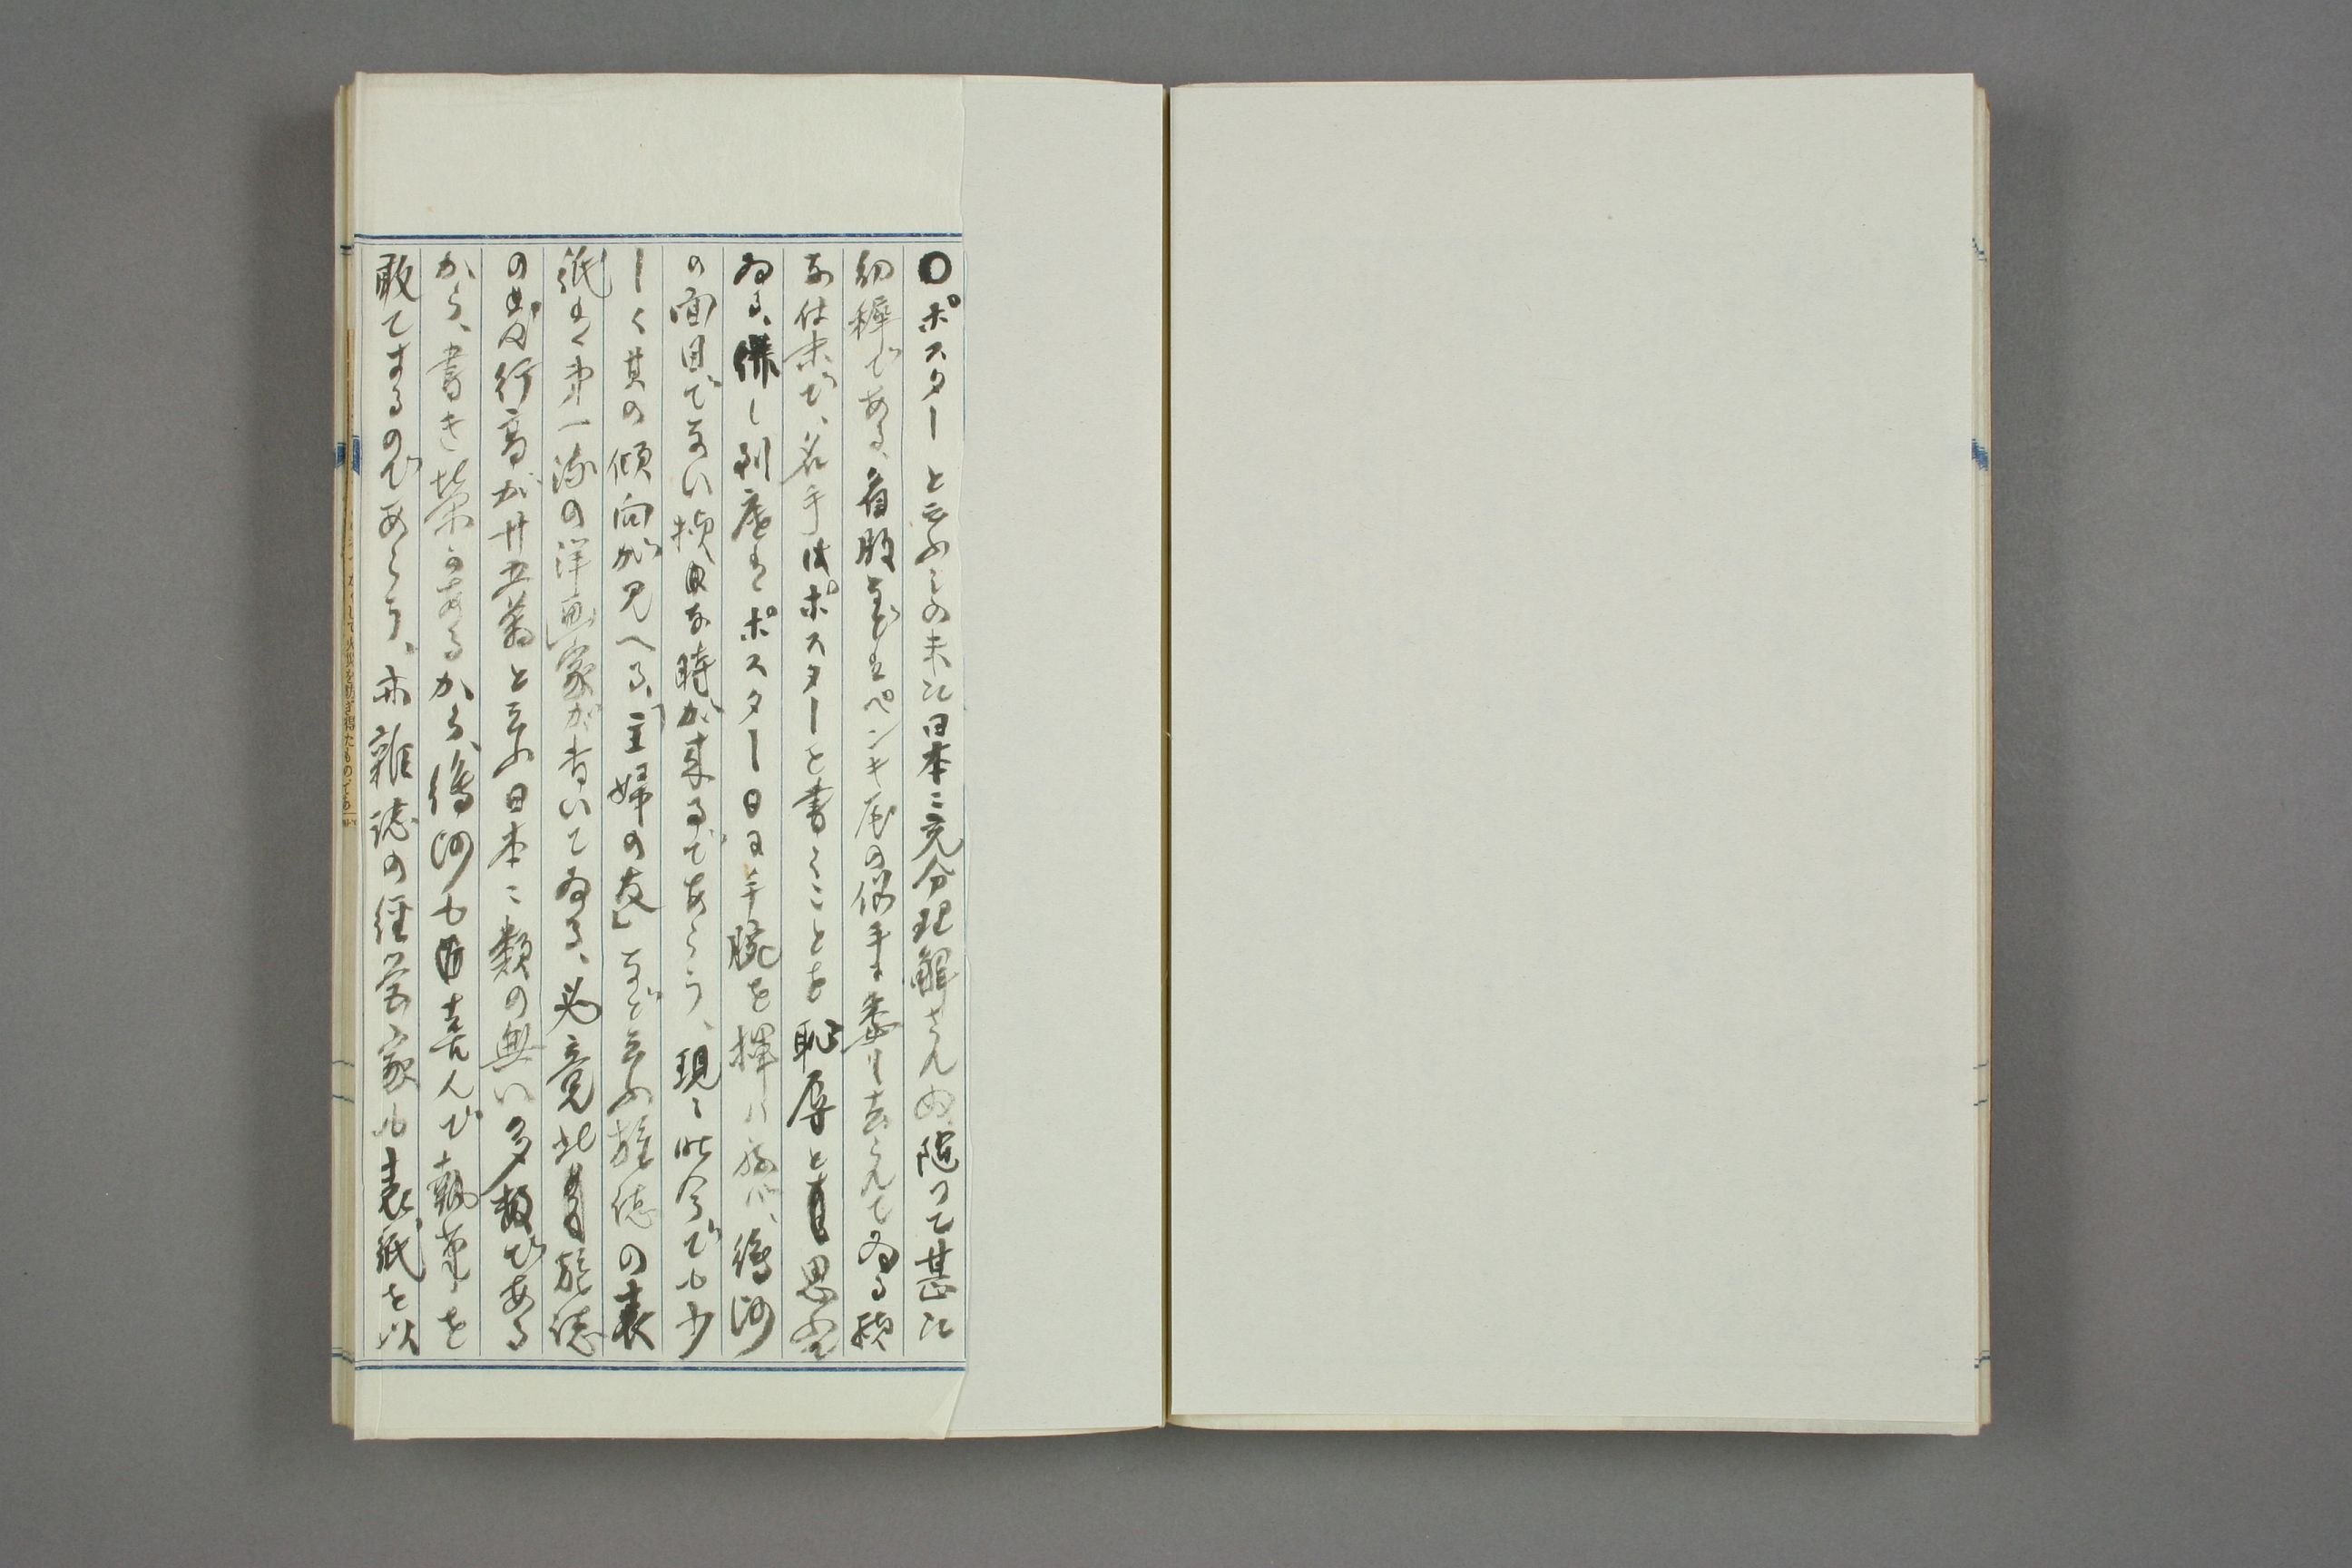 ○ポスターと云ふもの未だ日本に充分理解されぬ、随つて甚だ
幼稺である、看版などはペンキ屋の俗手に委し去られてゐる様
な仕末で、名手はポスターを書くことを恥辱と思ふて
ゐる、併し別底はポスター日に手腕を揮
の面目でない様な時が来るであらう、現に昨今でも少
しく其の傾向が見へる、「主婦の友」など云ふ雑誌の表
紙は第一流の洋画家が書いてゐる、必竟此雑誌
の発行高が廿五萬と云ふ日本に類の無い多数である
から、書き栄があるから、喜んで執筆を
敢てするのであらう、亦雑誌の経営家も表紙を以
火災を防ぎ得たものであ